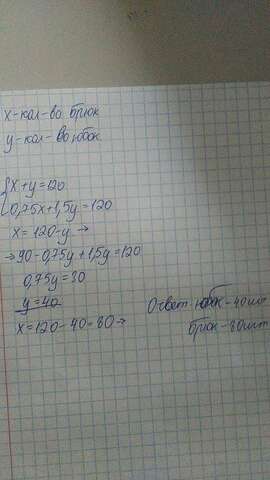 x-кол-во брюк
y-кол-во юбок
{x+y=120
0,75x+1,5y=120
x=120-y →
→90-0,75y+1,5y=120
0,75y=30
y=40
x=120-40=80→
Ответ: юбок-40шт
брюк-80шт